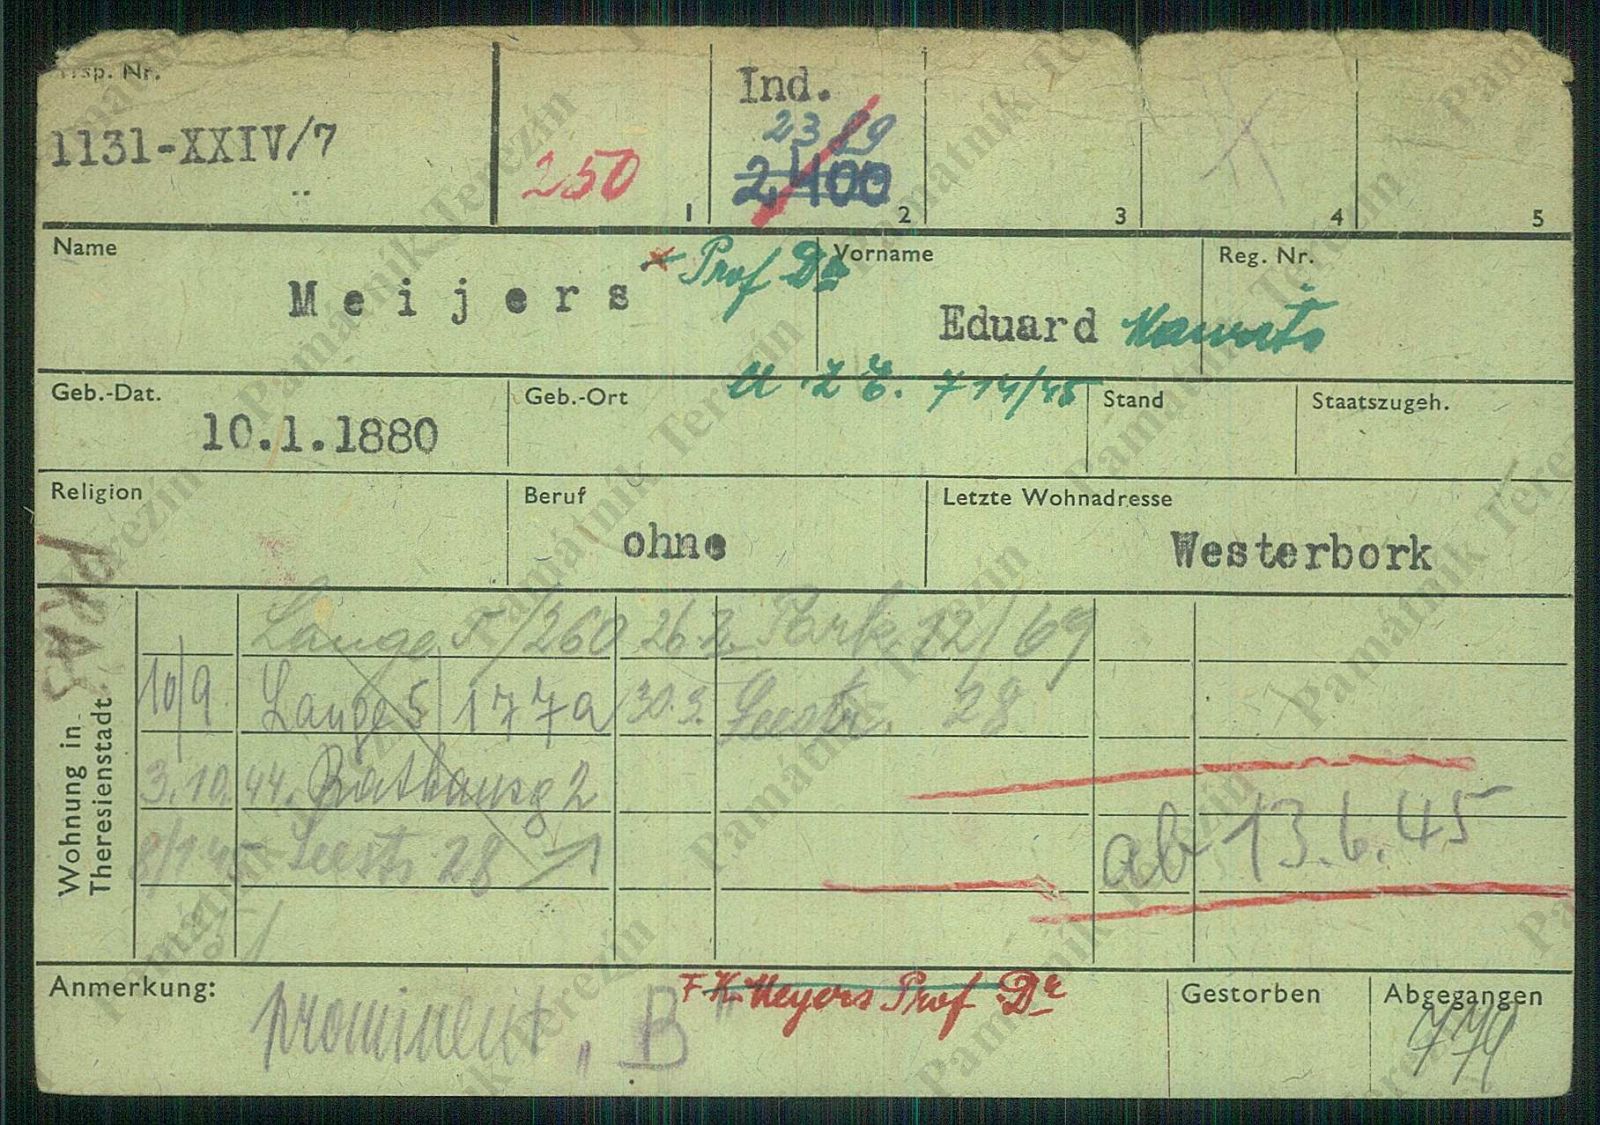 Trsp. Nr.
1131-XXIV/7
250
1
Ind.
23/89
2400
2
3
4
5
Name
Meijers
Prof Dr
Vorname
Eduard
Reg. Nr.
Geb.-Dat.
10.1.1880
Geb.-Ort
714/45
Stand
Staatszugeh.
Religion
Beruf
ohne
Letzte Wohnadresse
Westerbork
Wohnung in
Theresienstadt
Lange 5/260
26.2. Park 12/69
10/9 Lange 5/177a
30.3. Seestr. 28
3.10.44. Rathausg 2
8/1 45 Seestr 28
ab 13.6.45
Anmerkung:
prominent "B"
Meyers Prof Dr
Gestorben
Abgegangen
Památník Terezín